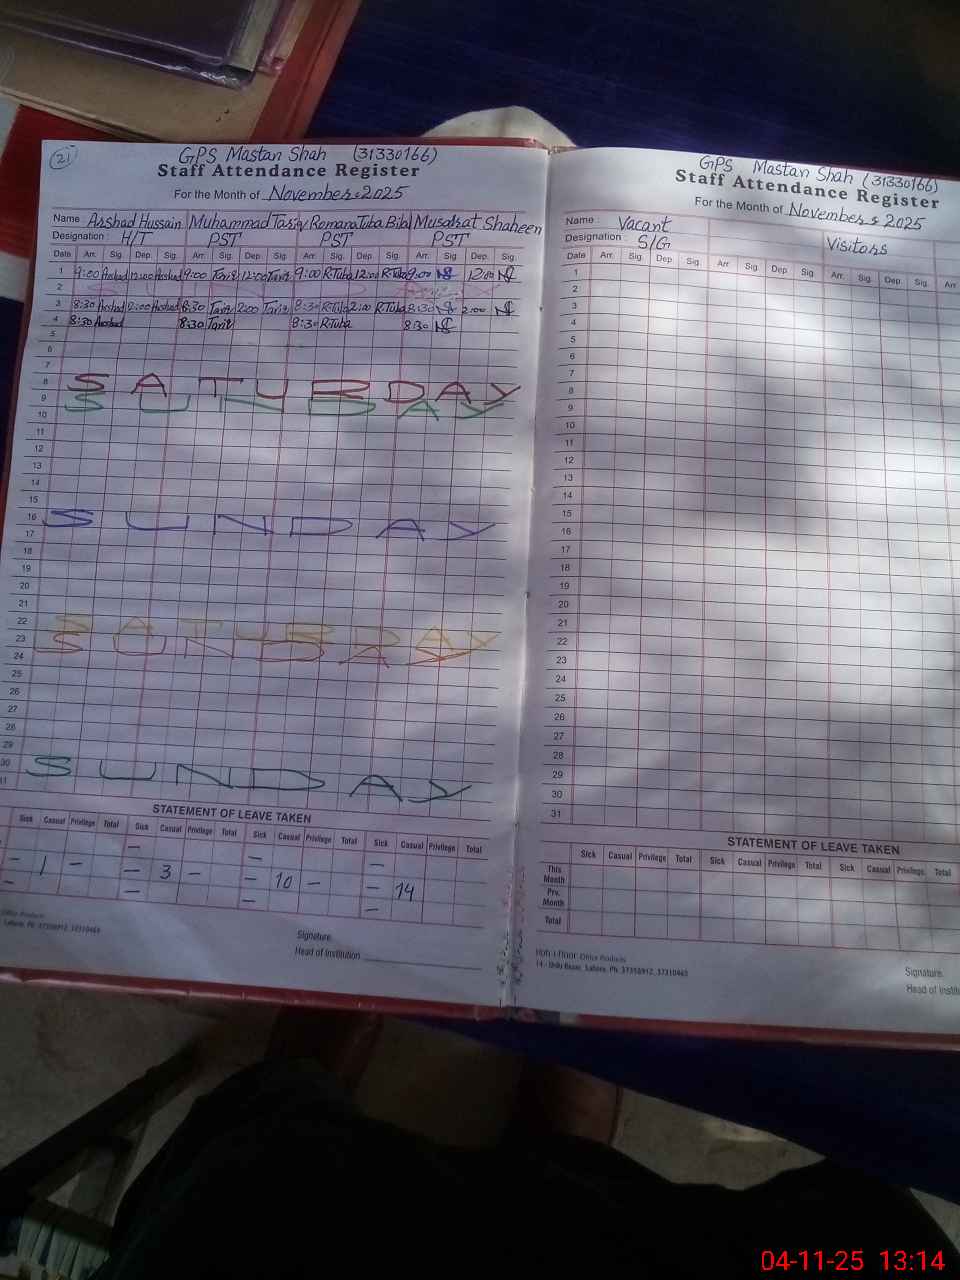 21
GPS Mastan Shah (31330166)
Staff Attendance Register
For the Month of November 2025
Name : Arshad Hussain Muhammad Tariq Romana Tuba Bilal Musarat Shaheen
Designation : H/T PST PST PST
Date Arr. Sig. Dep. Sig. Arr. Sig. Dep. Sig. Arr. Sig. Dep. Sig. Arr. Sig. Dep. Sig.
1 9:00 Arshad 12:00 Arshad 9:00 Tariq 12:00 Tariq 9:00 R.Tuba 12:00 R.Tuba 9:00 12:00
2
3 8:30 Arshad 2:00 Arshad 8:30 Tariq 2:00 Tariq 8:30 R.Tuba 2:00 R.Tuba 8:30 2:00
4 8:30 Arshad 8:30 Tariq 8:30 R.Tuba 8:30
5
6
7
8 SATURDAY
9 SUNDAY
10
11
12
13
14
15
16 SUNDAY
17
18
19
20
21
22 SATURDAY
23 SUNDAY
24
25
26
27
28
29
30 SUNDAY
31
STATEMENT OF LEAVE TAKEN
Sick Casual Privilege Total Sick Casual Privilege Total Sick Casual Privilege Total Sick Casual Privilege Total
– 1 – – 3 – – 10 – – 14
Office Products
Lahore, Ph: 37358912, 37310465
Signature.
Head of Institution
GPS Mastan Shah (31330166)
Staff Attendance Register
For the Month of November 2025
Name : Vacant
Designation : S/G Visitors
Date Arr. Sig. Dep. Sig. Arr. Sig. Dep. Sig. Arr. Sig. Dep. Sig. Arr.
1
2
3
4
5
6
7
8
9
10
11
12
13
14
15
16
17
18
19
20
21
22
23
24
25
26
27
28
29
30
31
STATEMENT OF LEAVE TAKEN
Sick Casual Privilege Total Sick Casual Privilege Total Sick Casual Privilege. Total
This Month
Prv. Month
Total
Office Products
Lahore, Ph: 37358912, 37310465
Signature.
Head of
04-11-25 13:14